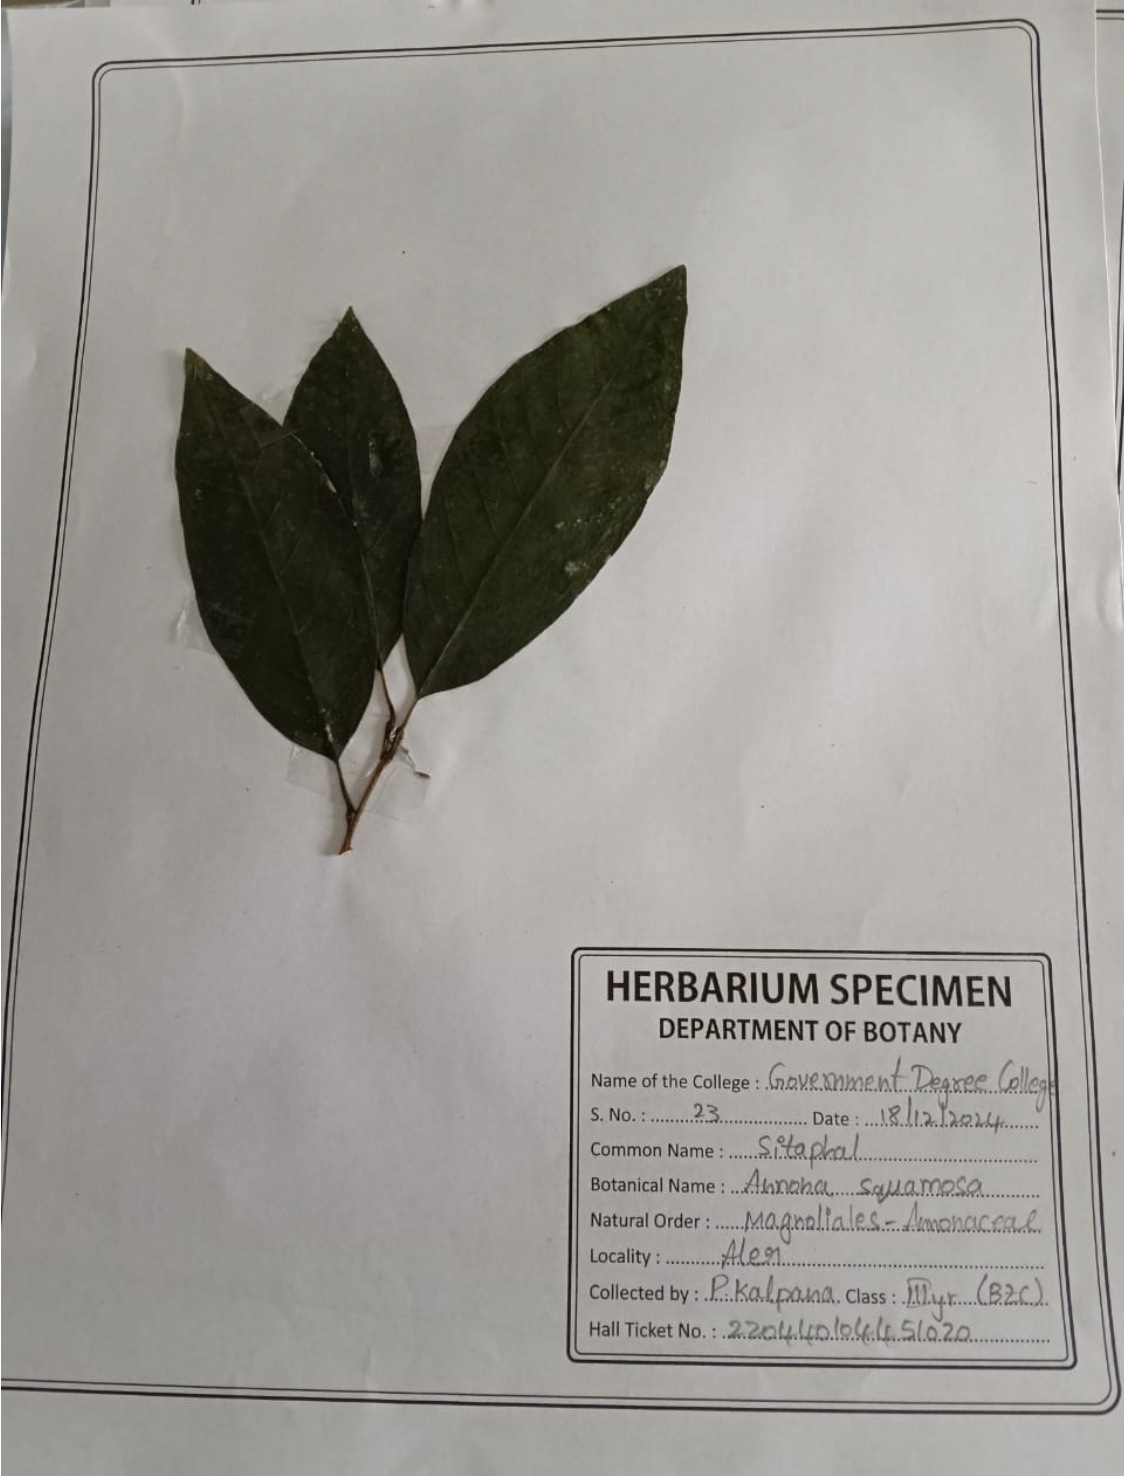 HERBARIUM SPECIMEN
DEPARTMENT OF BOTANY
Name of the College : Government Degree College
S. No. : 23 Date : 18/12/2024
Common Name : Sitaphal
Botanical Name : Annona squamosa
Natural Order : Magnoliales - Annonaceae
Locality : Aler
Collected by : P. Kalpana Class : III yr (BZC)
Hall Ticket No. : 220440104451020